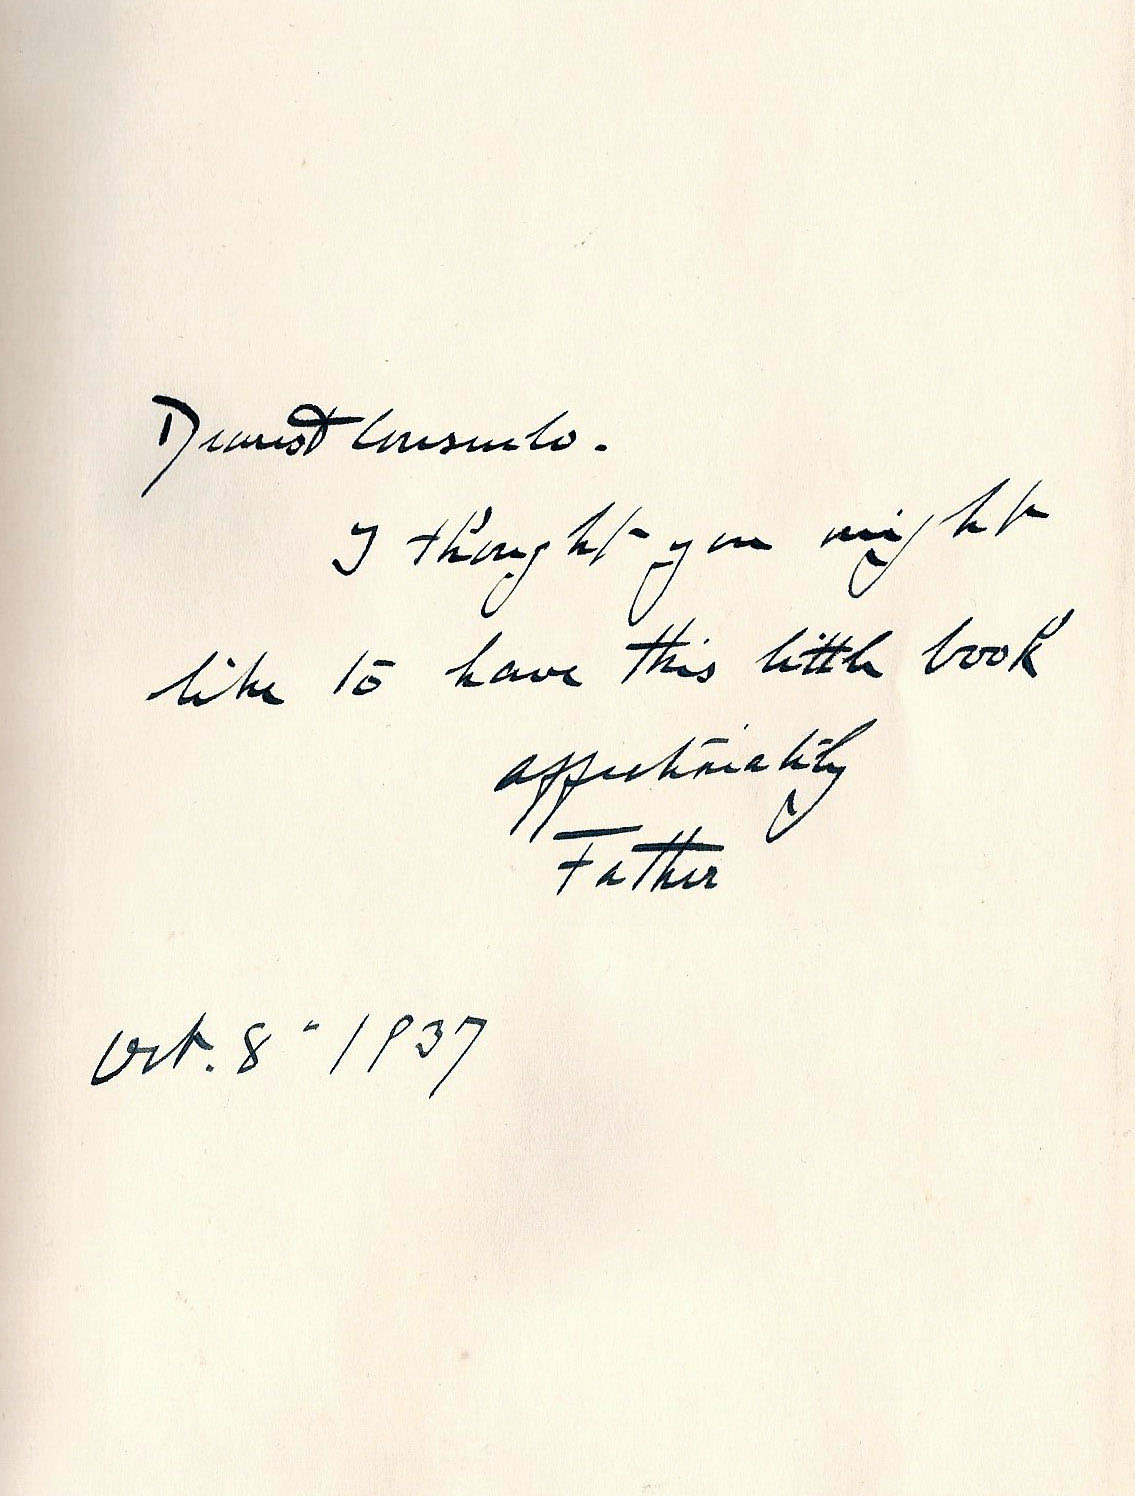 Dearest Consuelo.
I thought you might
like to have this little book
affectionately
Father
Oct. 8" 1937